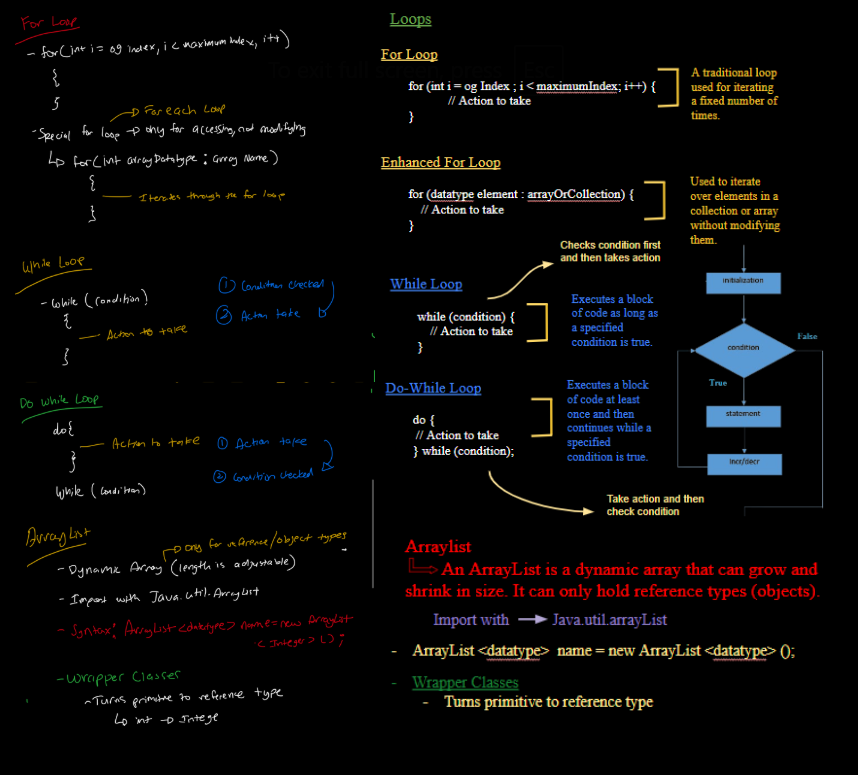 For Loop
- for(int i = og index, i < maximumIndex, i++)
{
}
→ For each Loop
- Special for loop → only for accessing, not modifying
↳ for(int arrayDatatype : array Name)
{
— Iterates through the for loop
}
While Loop
- while (condition)
{
— Action to take
}
① Condition checked
② Action take
Do While Loop
do{
— Action to take
}
while (condition)
① Action take
② Condition checked
ArrayList
→ only for reference/object types
- Dynamic Array (length is adjustable)
- Import with Java.util.ArrayList
- Syntax: ArrayList <datatype> name = new ArrayList
<Integer> ();
- Wrapper Classes
- Turns primitive to reference type
↳ int → Intege
Loops
For Loop
for (int i = og Index ; i < maximumIndex; i++) {
// Action to take
}
A traditional loop
used for iterating
a fixed number of
times.
Enhanced For Loop
for (datatype element : arrayOrCollection) {
// Action to take
}
Used to iterate
over elements in a
collection or array
without modifying
them.
Checks condition first
and then takes action
While Loop
while (condition) {
// Action to take
}
Executes a block
of code as long as
a specified
condition is true.
Do-While Loop
do {
// Action to take
} while (condition);
Executes a block
of code at least
once and then
continues while a
specified
condition is true.
Take action and then
check condition
initialization
condition
False
True
statement
incr/decr
Arraylist
An ArrayList is a dynamic array that can grow and
shrink in size. It can only hold reference types (objects).
Import with → Java.util.arrayList
- ArrayList <datatype> name = new ArrayList <datatype> ();
- Wrapper Classes
- Turns primitive to reference type